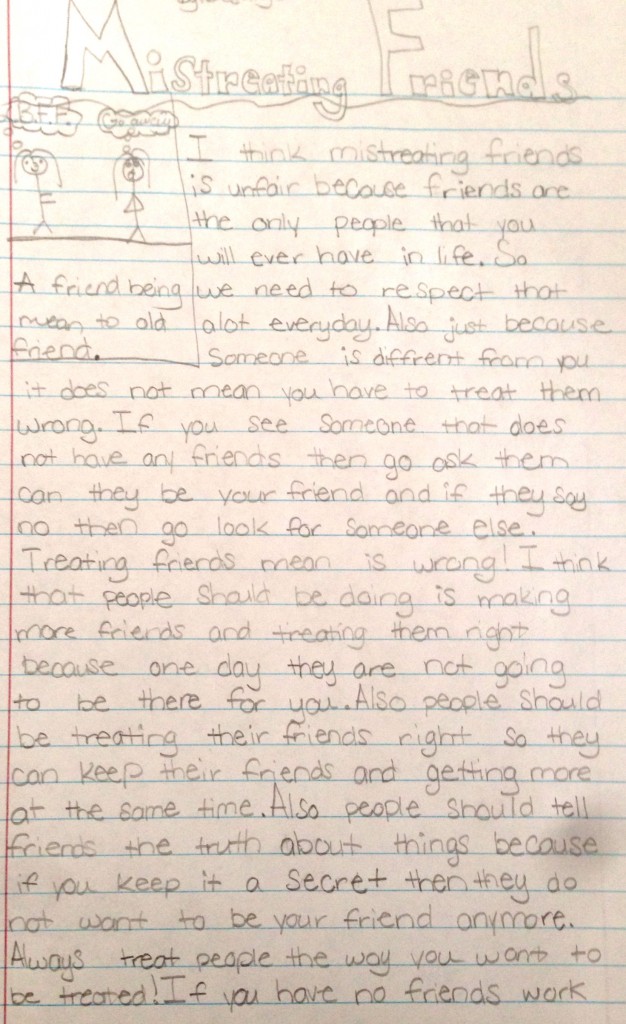 Mistreating Friends
B.F.F.
Go away
I think mistreating friends
is unfair because friends are
the only people that you
will ever have in life. So
A friend being
mean to old
friend.
we need to respect that
alot everyday. Also just because
Someone is diffrent from you
it does not mean you have to treat them
wrong. If you see someone that does
not have any friends then go ask them
can they be your friend and if they say
no then go look for someone else.
Treating friends mean is wrong! I think
that people should be doing is making
more friends and treating them right
because one day they are not going
to be there for you. Also people should
be treating their friends right so they
can keep their friends and getting more
at the same time. Also people should tell
friends the truth about things because
if you keep it a secret then they do
not want to be your friend anymore.
Always treat people the way you want to
be treated! If you have no friends work